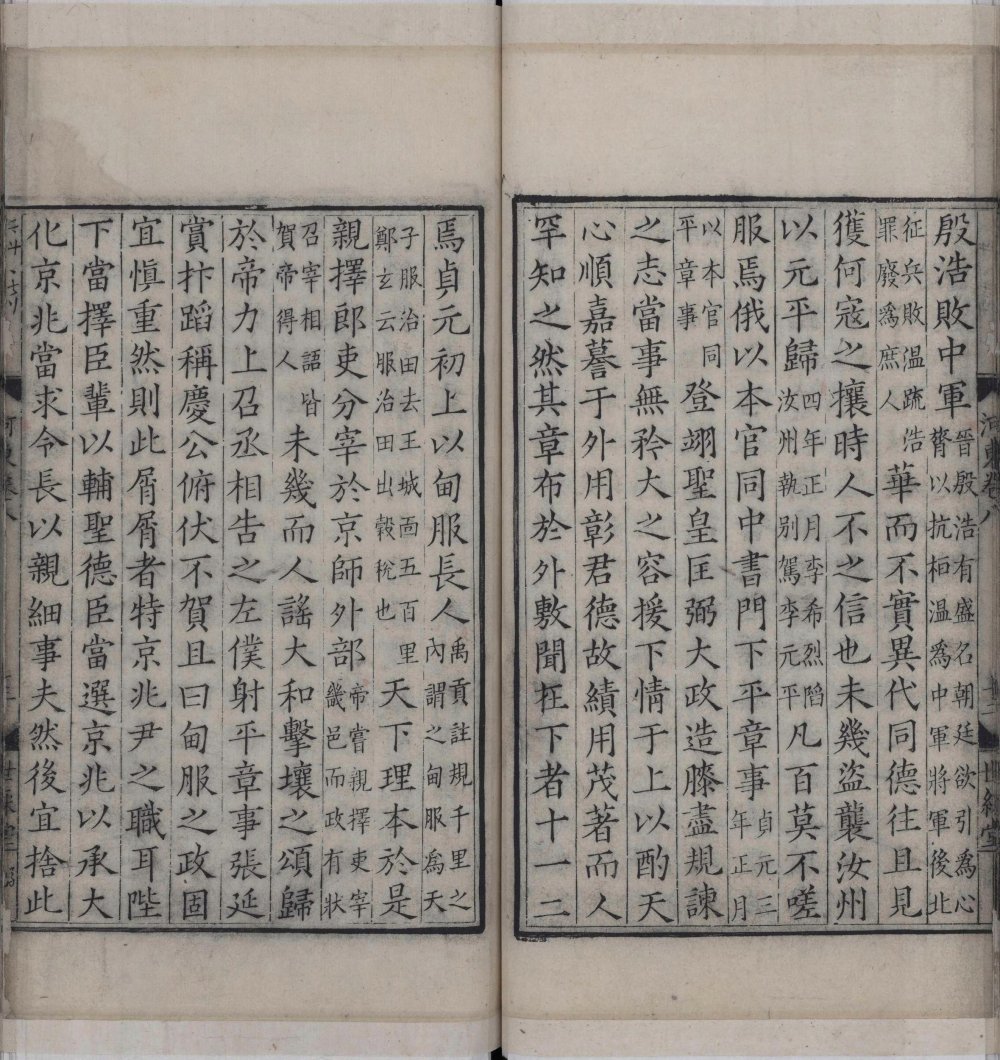 殷浩敗中軍晉殷浩有盛名朝廷欲引為心
膂以抗桓溫為中軍將軍後北
征兵敗溫䟽浩
罪廢為庶人華而不實異代同德往且見
獲何寇之攘時人不之信也未幾盜襲汝州
以元平歸四年正月李希烈䧟
汝州執别駕李元平凡百莫不嗟
服焉俄以本官同中書門下平章事貞元三
年正月
以本官同
平章事登翊聖皇匡弼大政造膝盡規諫
之志當事無矜大之容援下情于上以酌天
心順嘉謩于外用彰君德故績用茂著而人
罕知之然其章布於外敷聞在下者十一二
焉貞元初上以甸服長人禹貢註規千里之
內謂之甸服為天
子服治田去王城面五百里
鄭玄云服治田出穀稅也天下理本於是
親擇郎吏分宰於京師外部帝嘗親擇吏宰
畿邑而政有狀
召宰相語皆
賀帝得人未幾而人謠大和擊壤之頌歸
於帝力上召丞相告之左僕射平章事張延
賞抃蹈稱慶公俯伏不賀且曰甸服之政固
宜慎重然則此屑屑者特京兆尹之職耳陛
下當擇臣輩以輔聖德臣當選京兆以承大
化京兆當求令長以親細事夫然後宜捨此